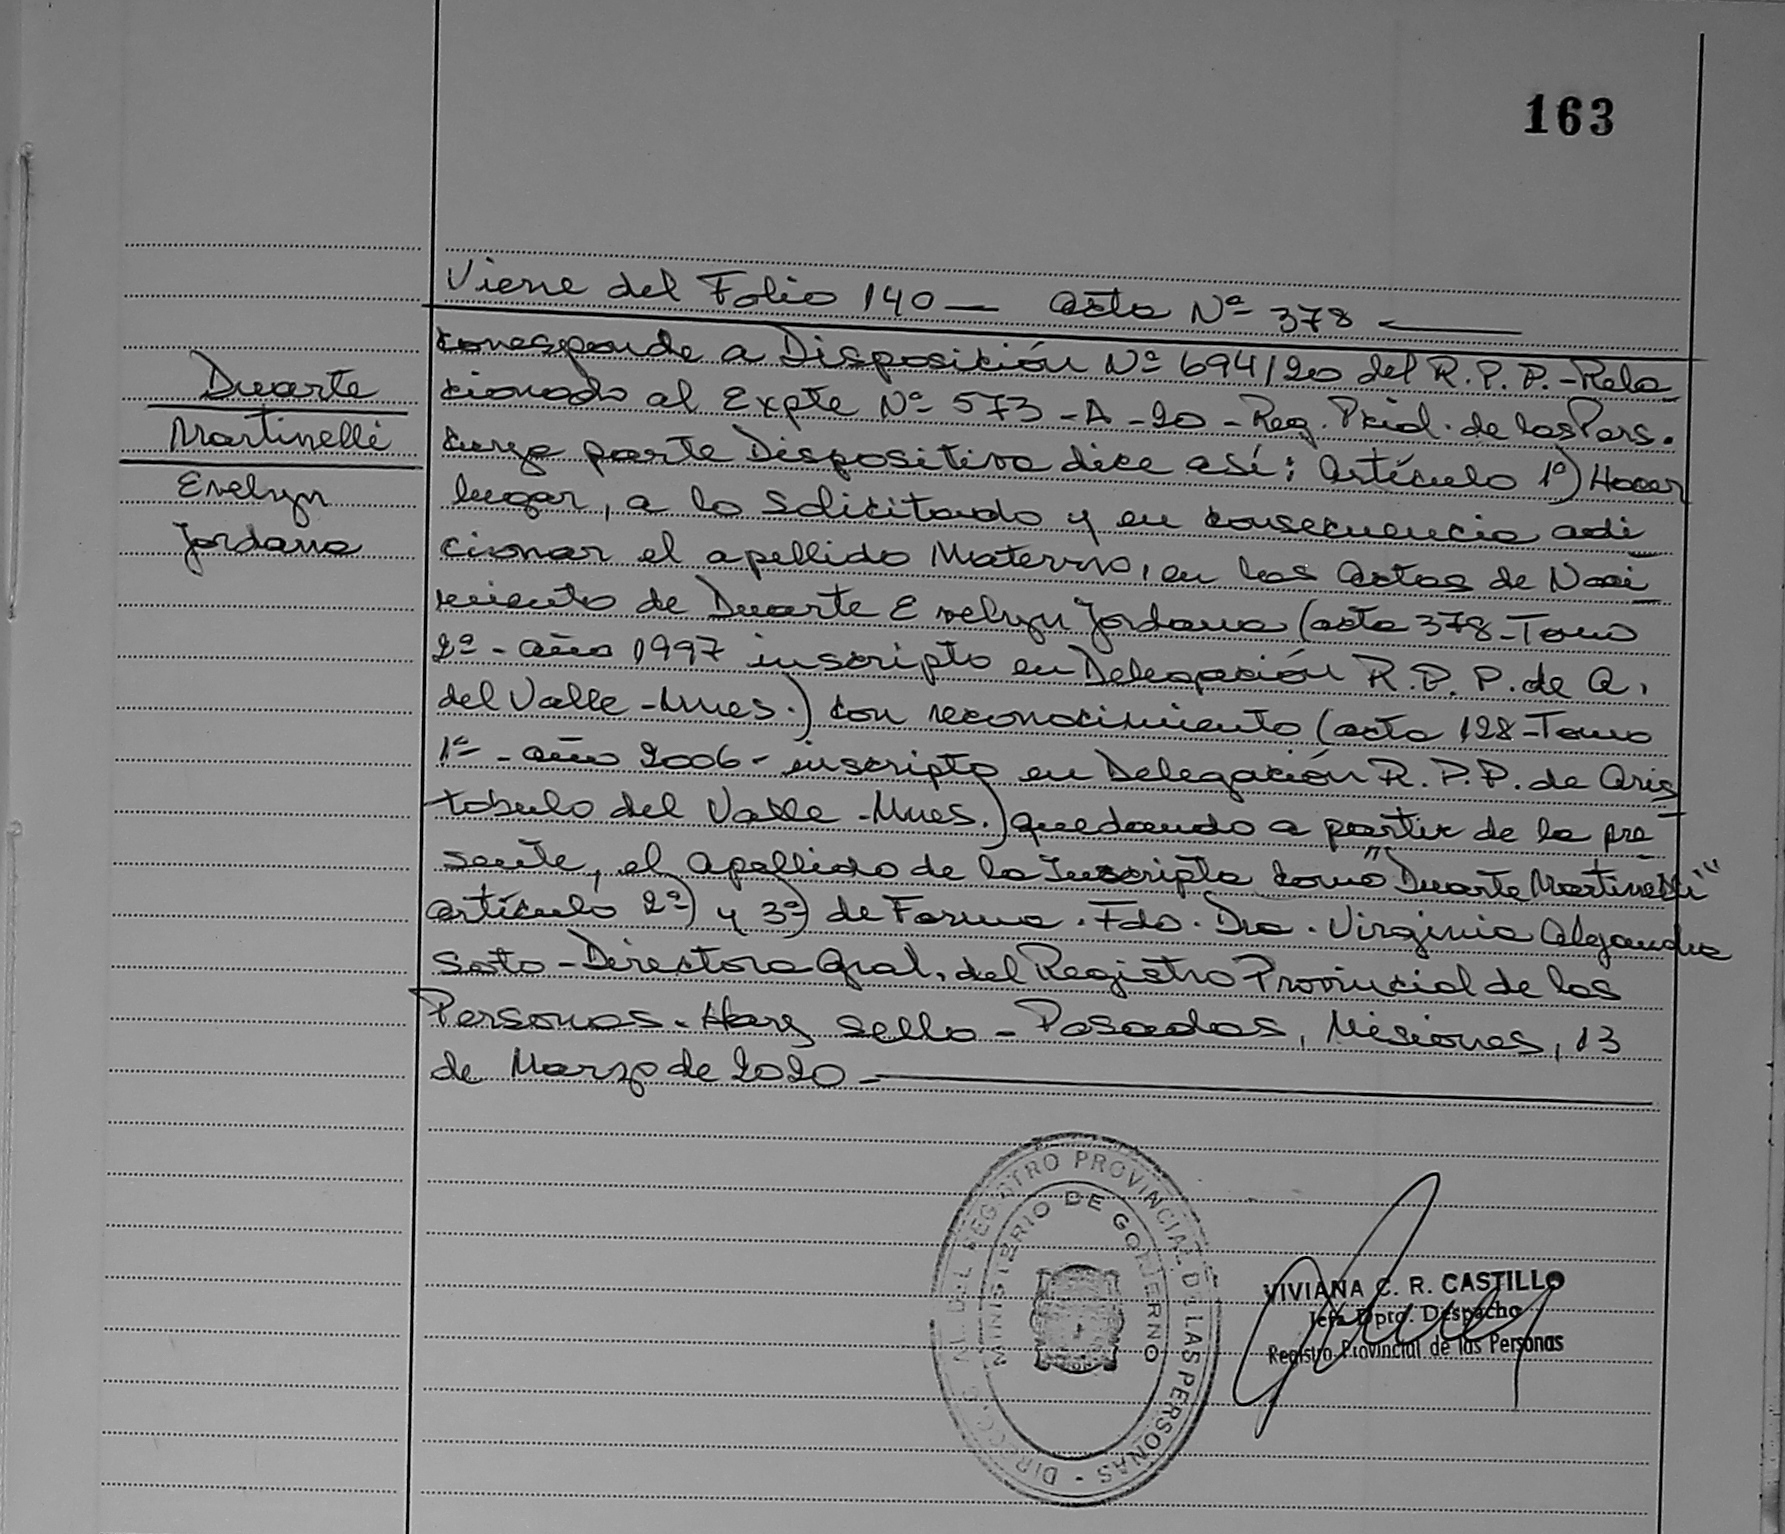 163
Viene del Folio 140 — Acta Nº 378 —
Corresponde a Disposición Nº 694/20 del R.P.P.-Rela
cionado al Expte Nº 573-A-20-Reg. Pcial. de las Pers.
cuya parte Dispositiva dice así: Artículo 1º) Hacer
lugar, a lo Solicitado y en consecuencia adi
cionar el apellido Materno, en las Actas de Naci
miento de Duarte Evelyn Jordana (acta 378-Tomo
2º-año 1997 inscripto en Delegación R.P.P. de A.
del Valle-Mnes.) con reconocimiento (acta 128-Tomo
1º-año 2006-inscripto en Delegación R.P.P. de Aris
tobulo del Valle-Mnes.) quedando a partir de la pre
sente, el Apellido de la Inscripta como "Duarte Martinelli"
Artículo 2º) y 3º) de Forma. Fdo. Dra. Virginia Alejandra
Soto-Directora Gral. del Registro Provincial de las
Personas. Hay sello-Posadas, Misiones, 13
de Marzo de 2020—
Duarte
Martinelli
Evelyn
Jordana
DIRECC. GRAL. DEL REGISTRO PROVINCIAL DE LAS PERSONAS -
MINISTERIO DE GOBIERNO
VIVIANA C. R. CASTILLO
Jefa Dpto. Despacho
Registro Provincial de las Personas